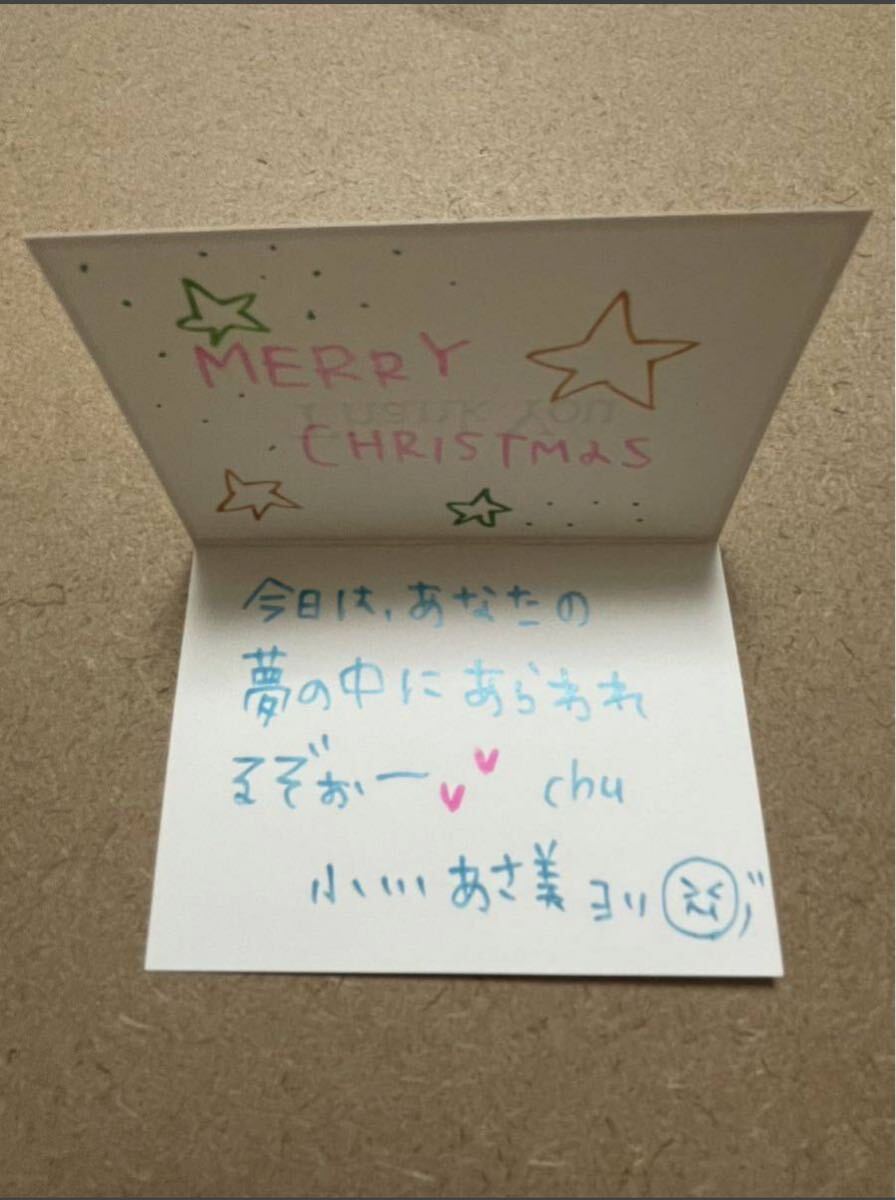 MERRY
Thank You
CHRISTMAS
今日は、あなたの
夢の中にあらわれ
るぞぉー♥♥ chu
小川あさ美ヨリ